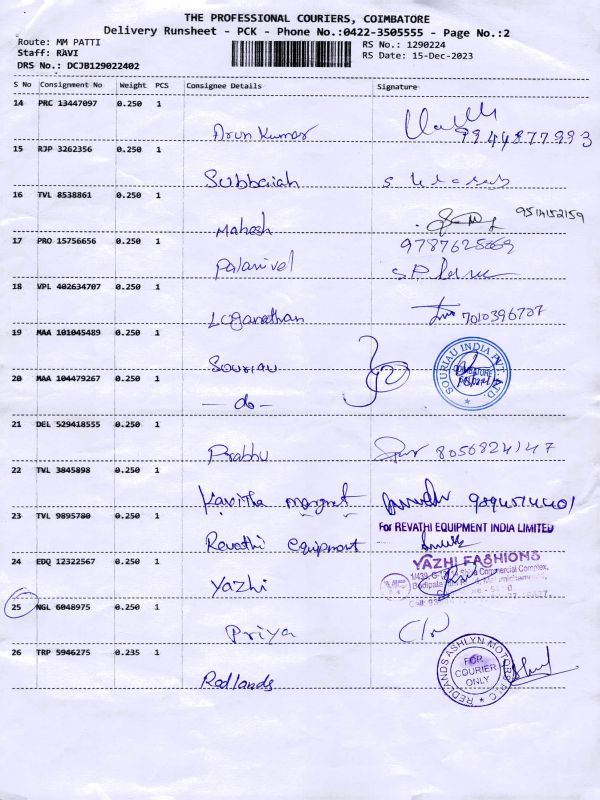 THE PROFESSIONAL COURIERS, COIMBATORE
Delivery Runsheet - PCK - Phone No.:0422-3505555 - Page No.:2
Route: MM PATTI
RS No.: 1290224
Staff: RAVI
RS Date: 15-Dec-2023
DRS No.: DCJB129022402
S No Consignment No Weight PCS Consignee Details Signature
14 PRC 13447097 0.250 1
Arun Kumar 9944877993
15 RJP 3262356 0.250 1
Subbaiah
16 TVL 8538861 0.250 1
Mahesh 9514152159
17 PRO 15756656 0.250 1
Palanivel
18 VPL 402634707 0.250 1
Loganathan 7010396707
19 MAA 101045489 0.250 1
Souriau SOURIAU INDIA PVT. LTD.
20 MAA 104479267 0.250 1
- do -
21 DEL 529418555 0.250 1
Prabhu 8056824147
22 TVL 3845898 0.250 1
Kavitha margret
23 TVL 9895780 0.250 1
For REVATHI EQUIPMENT INDIA LIMITED
Revathi equipment
24 EDQ 12322567 0.250 1
YAZHI FASHIONS
Commercial Complex,
Yazhi
25 NGL 6048975 0.250 1
Priya
26 TRP 5946275 0.235 1
Redlands REDLANDS ASHLYN MOTORS PLC
FOR
COURIER
ONLY